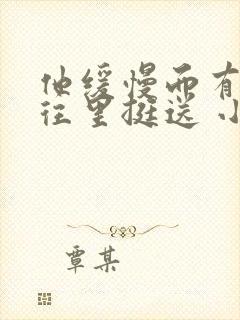 他缓慢而有
往里挺送 小
覃某